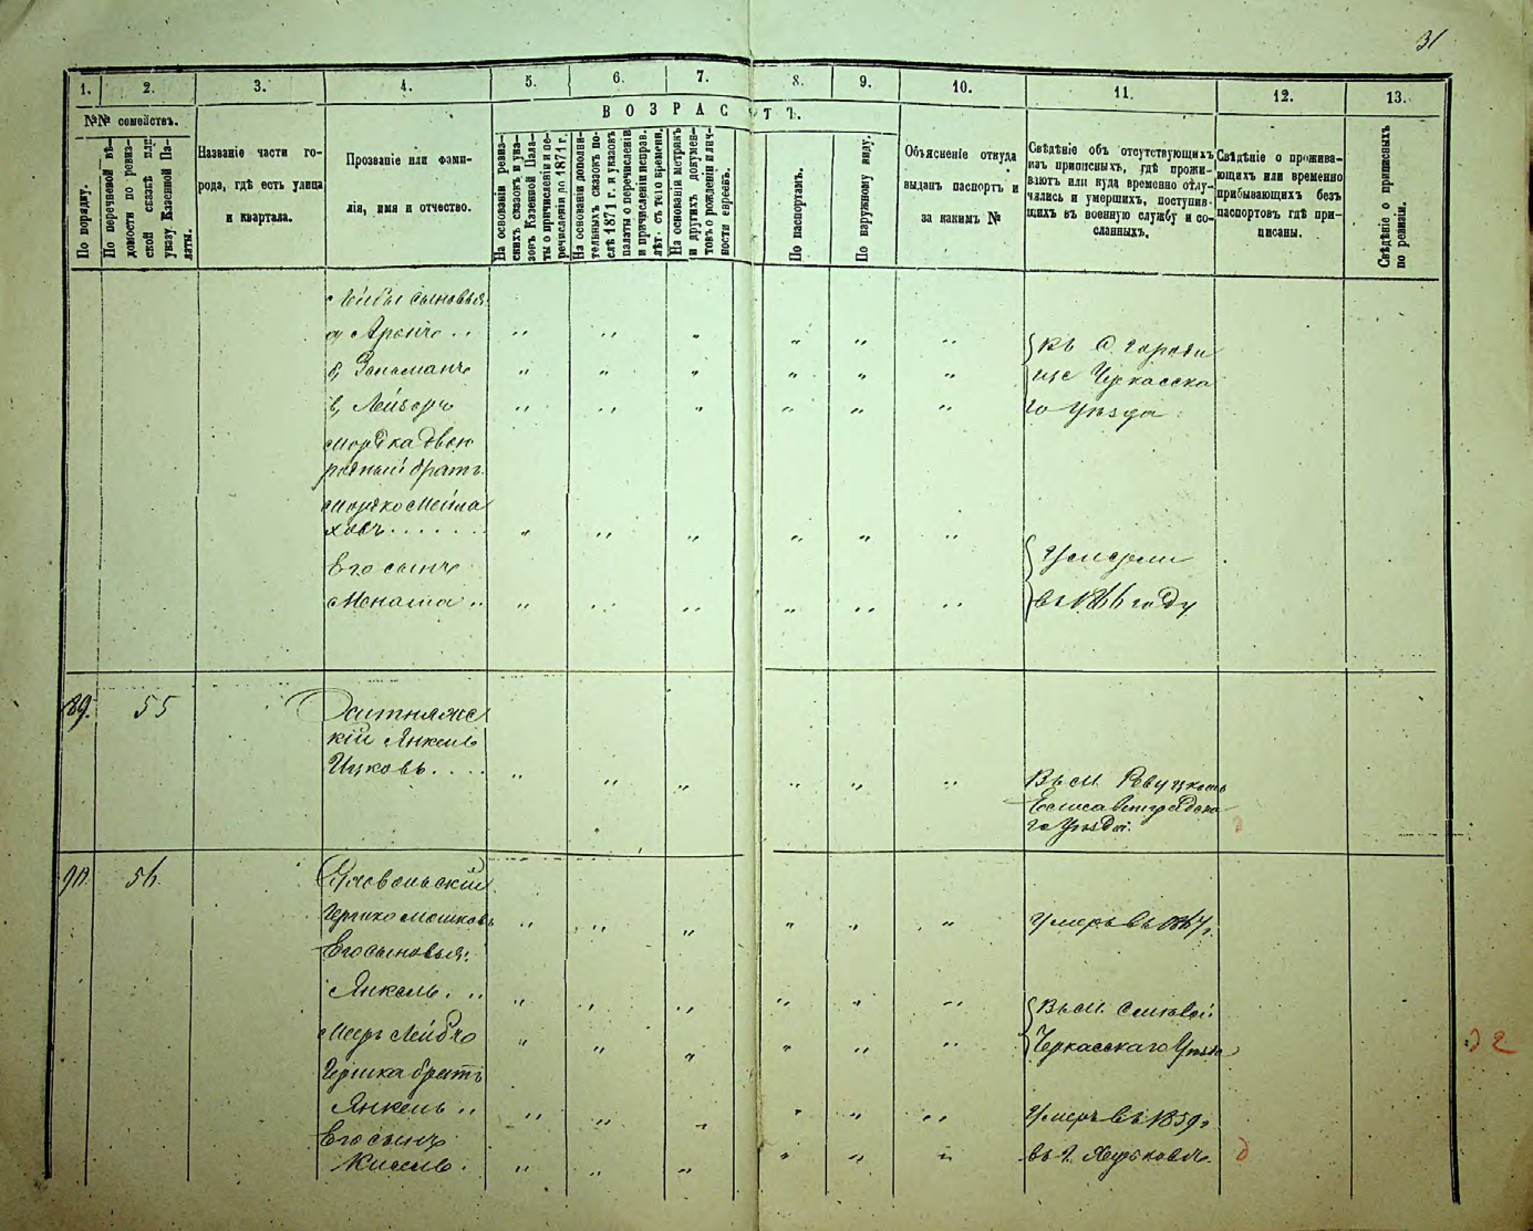 31
1. 2. 3. 4. 5. 6. 7. 8. 9. 10. 11. 12. 13.
№№ семействъ.
По порядку.
По перечневой вѣ-
домости по ревиз-
ской сказкѣ или
указу Казенной Па-
латы.
Названіе части го-
рода, гдѣ есть улица
и квартала.
Прозваніе или фами-
лія, имя и отчество.
ВОЗРАСТЪ.
На основаніи ревиз-
скихъ сказокъ и ука-
зовъ Казенной Пала-
ты о причисленіи и пе-
речисленіи до 1871 г.
На основаніи дополни-
тельныхъ сказокъ по-
слѣ 1871 г. и указовъ
палаты о перечисленіи
и причисленіи неправ.
лѣт. съ того времени.
На основаніи метрикъ
и другихъ докумен-
товъ о рожденіи и лич-
ности евреевъ.
По паспортамъ.
По наружному виду.
Объясненіе откуда
выданъ паспортъ и
за какимъ №
Свѣдѣніе объ отсутствующихъ
изъ приписныхъ, гдѣ прожи-
ваютъ или куда временно отлу-
чились и умершихъ, поступив-
шихъ въ военную службу и со-
сланныхъ.
Свѣдѣніе о прожива-
ющихъ или временно
прибывающихъ безъ
паспортовъ гдѣ при-
писаны.
Свѣдѣніе о приписныхъ
по ревизіи.
Лейбы сыновья
а, Аронъ
б, Зельманъ
в, Лейзоръ
въ с. Городи
ще Черкасска
го Уѣзда
Мордка двою
родный братъ
Мордко Мейла
ховъ
Его сынъ
Менаша
Умерли
въ 1866 году
89. 55
кій Янкель
Ицковъ
Въ м.
Елисаветградска
го Уѣзда
90. 56.
Гершко Мошковъ
Умеръ въ 1867 г.
Его сыновья:
Янкель
Меер Лейбъ
Въ м. Смѣлой
Черкасскаго Уѣзда
2
Гершка братъ
Янкель
Умеръ въ 1859 г.
Его сынъ
Кисель
въ г. Харьковѣ